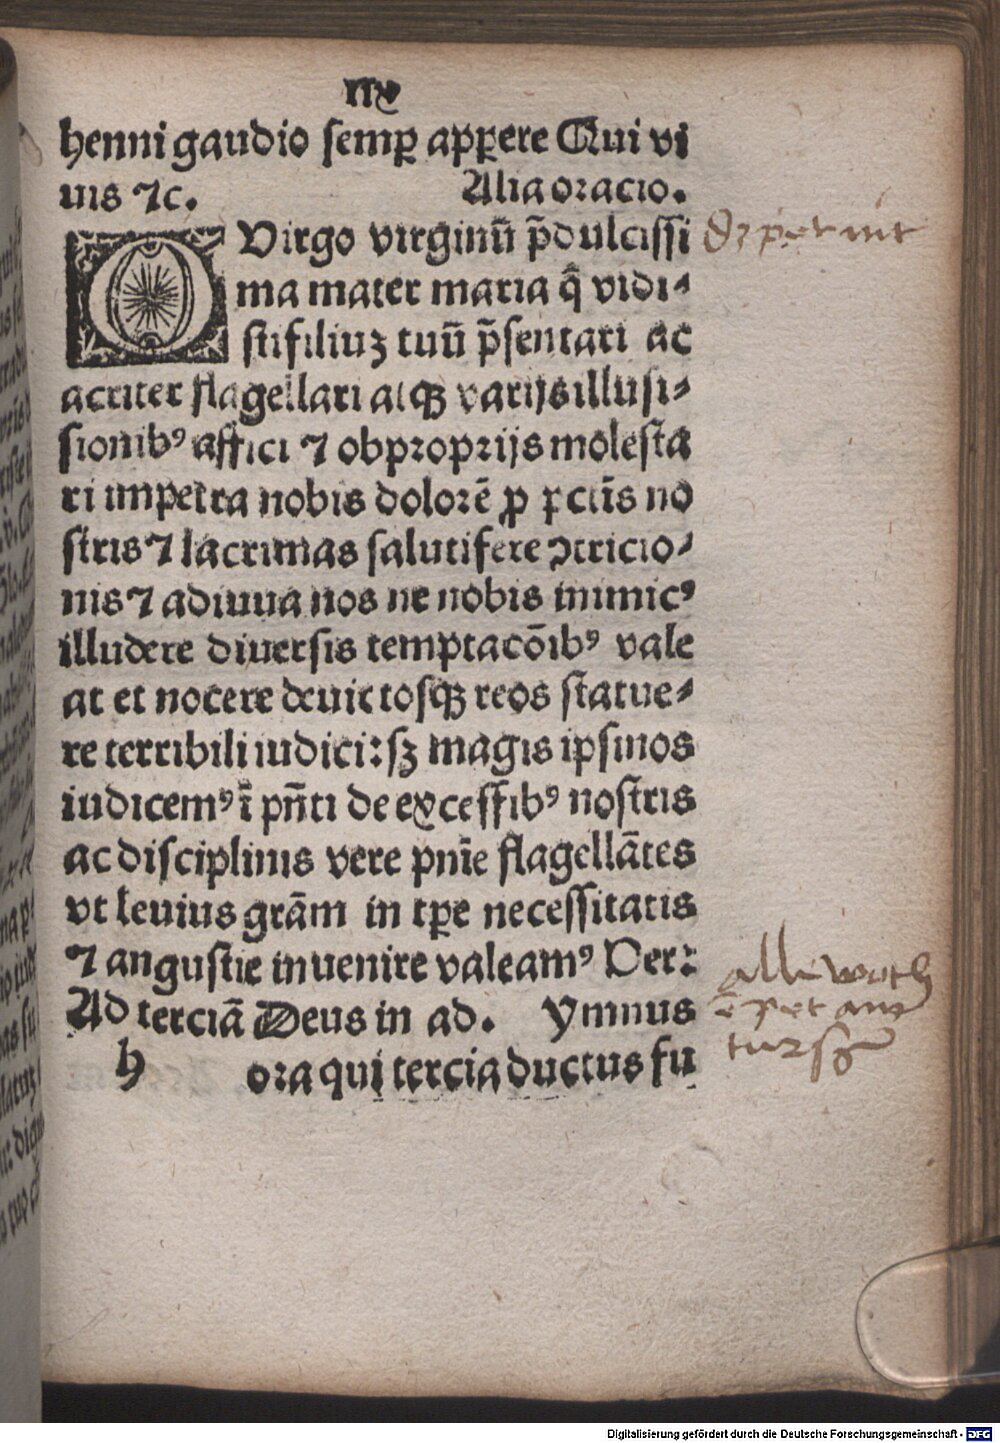 henni gaudio semꝑ apꝑere Qui vi
uis ⁊c. Alia oracio.
O Virgo virginū p̄dulcissi
ma mater maria q̄ vidi⸗
sti filiuꝫ tuū p̄sentari ac
acriter flagellari atqꝫ varijs illusi⸗
sionibꝰ affici ⁊ obproprijs molesta
ri impetra nobis dolorē ꝓ pctīs no
stris ⁊ lacrimas salutifere ꝯtricio⸗
nis ⁊ adiuua nos ne nobis inimicꝰ
illudere diuersis temptacōibꝰ vale
at et nocere deuictosqꝫ reos statue⸗
re terribili iudici: sꝫ magis ipsi nos
iudicemꝰ ī pn̄ti de excessibꝰ nostris
ac disciplinis vere pnīe flagellātes
vt leuius grām in tꝑe necessitatis
⁊ angustie inuenire valeamꝰ Per:
Ad terciā Deus in ad. Ymnus
h ora qui tercia ductus fu
Digitalisierung gefördert durch die Deutsche Forschungsgemeinschaft - DFG